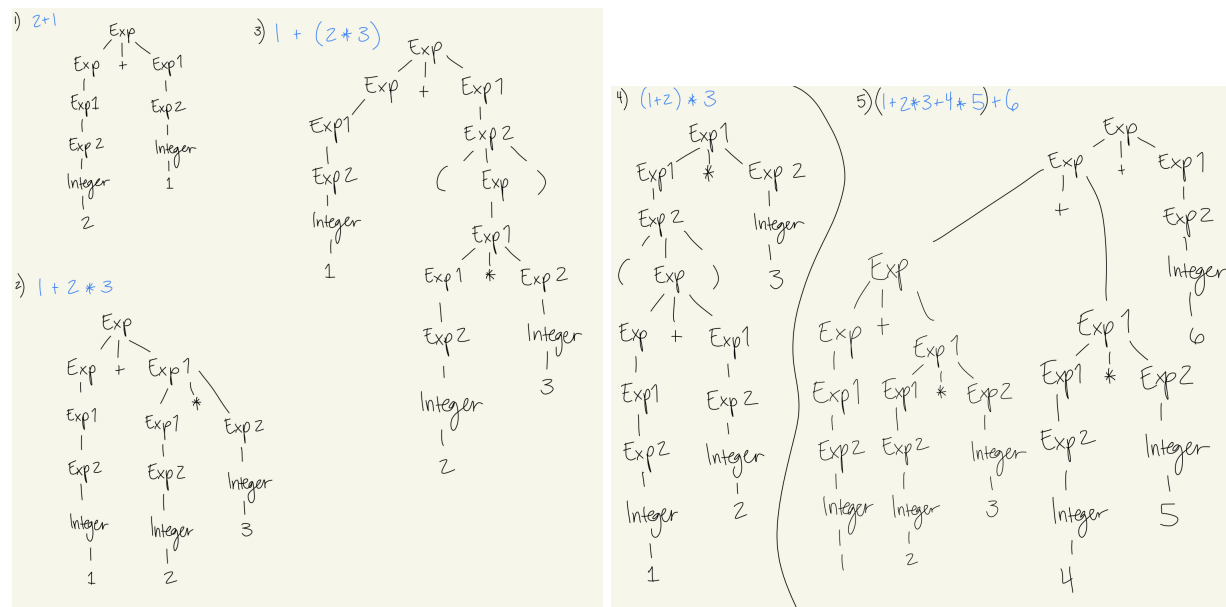 1) 2+1
Exp
Exp + Exp1
Exp1 Exp2
Exp2 Integer
Integer 1
2
2) 1 + 2 * 3
Exp
Exp + Exp1
Exp1 Exp1 * Exp2
Exp2 Exp2 Integer
Integer Integer 3
1 2
3) 1 + (2 * 3)
Exp
Exp + Exp1
Exp1 Exp2
Exp2 ( Exp )
Integer Exp1
1 Exp1 * Exp2
Exp2 Integer
Integer 3
2
4) (1+2) * 3
Exp1
Exp1 * Exp2
Exp2 Integer
( Exp ) 3
Exp + Exp1
Exp1 Exp2
Exp2 Integer
Integer 2
1
5) (1+2*3+4*5)+6
Exp
Exp + Exp1
+ Exp2
Exp Integer
Exp + Exp1 Exp1 6
Exp1 Exp1 * Exp2 Exp1 * Exp2
Exp2 Exp2 Integer Exp2 Integer
Integer Integer 3 Integer 5
1 2 4